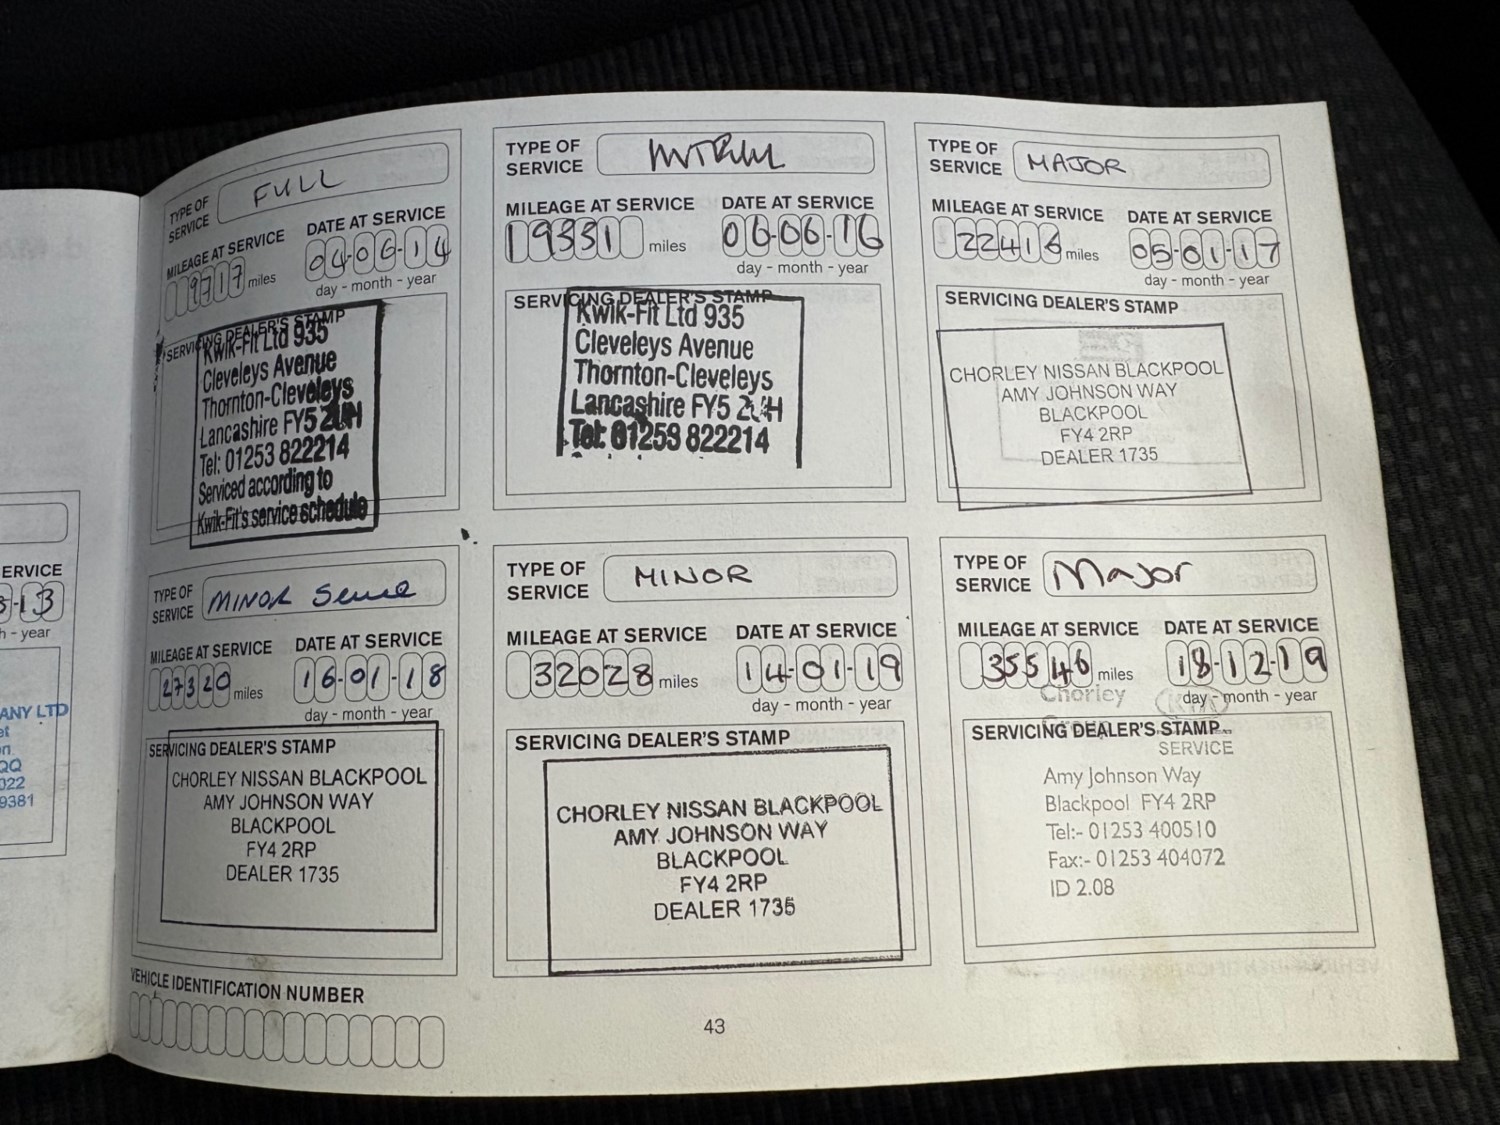 ERVICE
-13
h - year
ANY LTD
et
n
QQ
022
9381
TYPE OF
SERVICE
FULL
MILEAGE AT SERVICE
DATE AT SERVICE
9717 miles
04-06-14
day - month - year
SERVICING DEALER'S STAMP
Kwik-Fit Ltd 935
Cleveleys Avenue
Thornton-Cleveleys
Lancashire FY5 2UH
Tel: 01253 822214
Serviced according to
Kwik-Fit's service schedule
TYPE OF
SERVICE
MILEAGE AT SERVICE
DATE AT SERVICE
19331 miles
06-06-16
day - month - year
SERVICING DEALER'S STAMP
Kwik-Fit Ltd 935
Cleveleys Avenue
Thornton-Cleveleys
Lancashire FY5 2UH
Tel: 01253 822214
TYPE OF
SERVICE
MAJOR
MILEAGE AT SERVICE
DATE AT SERVICE
22416 miles
05-01-17
day - month - year
SERVICING DEALER'S STAMP
CHORLEY NISSAN BLACKPOOL
AMY JOHNSON WAY
BLACKPOOL
FY4 2RP
DEALER 1735
TYPE OF
SERVICE
MINOR
MILEAGE AT SERVICE
DATE AT SERVICE
27320 miles
16-01-18
day - month - year
SERVICING DEALER'S STAMP
CHORLEY NISSAN BLACKPOOL
AMY JOHNSON WAY
BLACKPOOL
FY4 2RP
DEALER 1735
TYPE OF
SERVICE
MINOR
MILEAGE AT SERVICE
DATE AT SERVICE
32028 miles
14-01-19
day - month - year
SERVICING DEALER'S STAMP
CHORLEY NISSAN BLACKPOOL
AMY JOHNSON WAY
BLACKPOOL
FY4 2RP
DEALER 1735
TYPE OF
SERVICE
Major
MILEAGE AT SERVICE
DATE AT SERVICE
35546 miles
18-12-19
day - month - year
Chorley
Group
SERVICING DEALER'S STAMP
SERVICE
Amy Johnson Way
Blackpool FY4 2RP
Tel:- 01253 400510
Fax:- 01253 404072
ID 2.08
VEHICLE IDENTIFICATION NUMBER
43